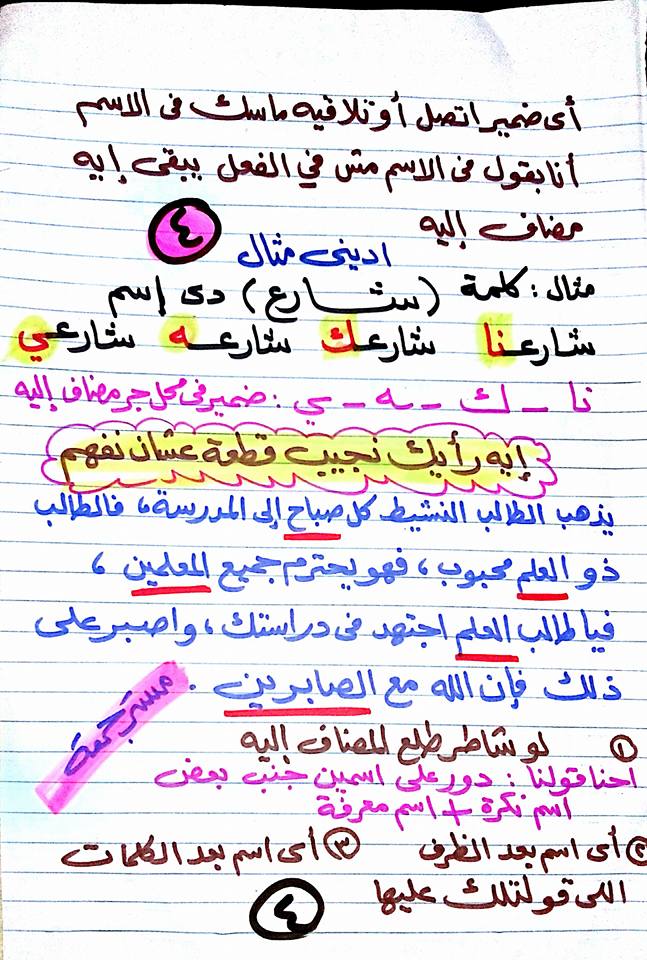 أى ضمير اتصل أو تلاقيه ماسك فى الاسم
أنا بقول فى الاسم مش في الفعل يبقى إيه
مضاف إليه
٤
ادينى مثال
مثال : كلمة (شارع) دى إسم
شارعنا شارعك شارعه شارعي
نا - ك - ـه - ي : ضمير فى محل جر مضاف إليه
إيه رأيك نجيب قطعة عشان نفهم
يذهب الطالب النشيط كل صباح إلى المدرسة، فالطالب
ذو العلم محبوب، فهو يحترم جميع المعلمين،
فيا طالب العلم اجتهد فى دراستك، واصبر على
ذلك فإن الله مع الصابرين .
مستر جمعة
١ لو شاطر طلع المضاف إليه
احنا قولنا : دور على اسمين جنب بعض
اسم نكرة + اسم معرفة
٢ أى اسم بعد الظرف ٣ أى اسم بعد الكلمات
اللى قولتلك عليها
٤